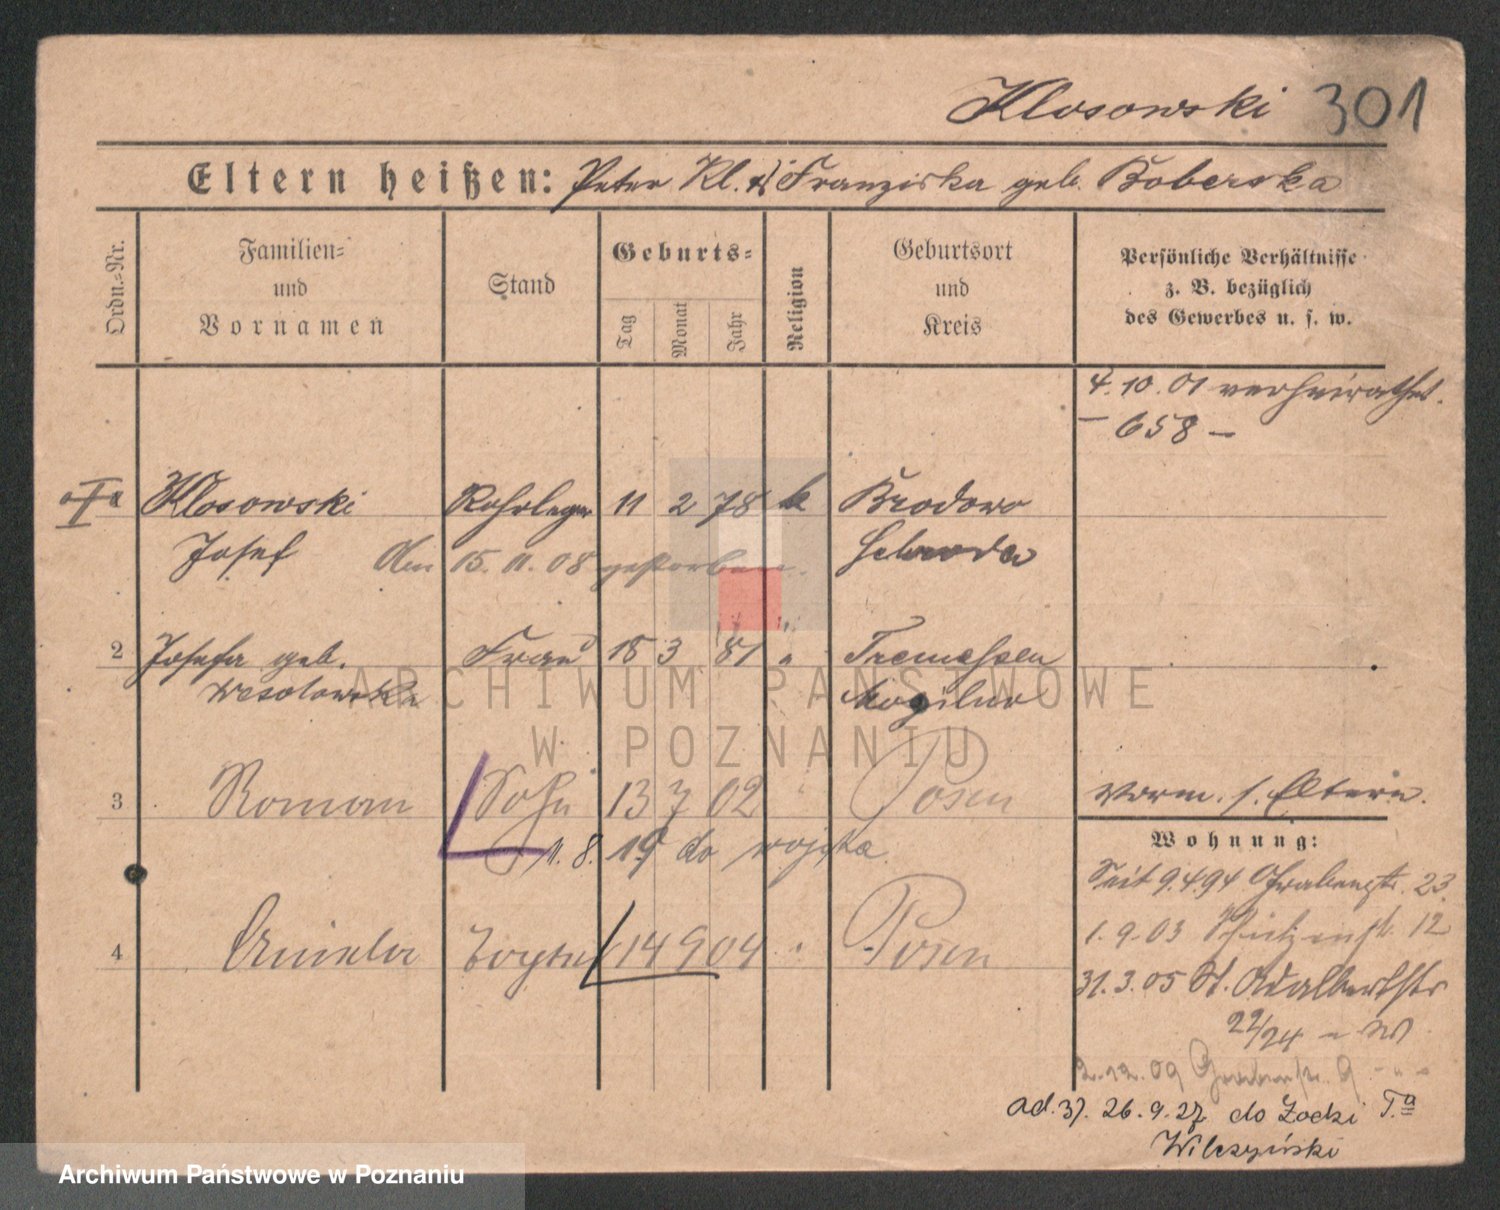 Klosowski 301
Eltern heißen: Peter Kl. u Franziska geb. Boberska
Ordn.-Nr.
Familien-
und
Vornamen
Stand
Geburts-
Tag
Monat
Jahr
Religion
Geburtsort
und
Kreis
Persönliche Verhältnisse
z. B. bezüglich
des Gewerbes u. s. w.
4. 10. 01 verheirathet.
– 658 –
Klosowski Rohrleger 11 2 78 k Brodowo
Josef den 15. 11. 08 gestorben. Schroda
2 Josefa geb. Frau 18 3 81 " Tremessen
Wesolowska Mogilno
3 Roman Sohn 13 7 02 " Posen Vorm. s. Eltern.
11. 8. 19 do wojska
Wohnung:
Seit 9.4.94 Grabenstr. 23
1. 9. 03 Schützenstr. 12
4 Aniela 14 9 04 " Posen
31. 3. 05 St. Adalbertstr
22/24
2. 12. 09 Grabenstr. 9
ad. 37. 26. 9. 27 do Łodzi T.a
Wilczyński
ARCHIWUM PAŃSTWOWE
W POZNANIU
Archiwum Państwowe w Poznaniu